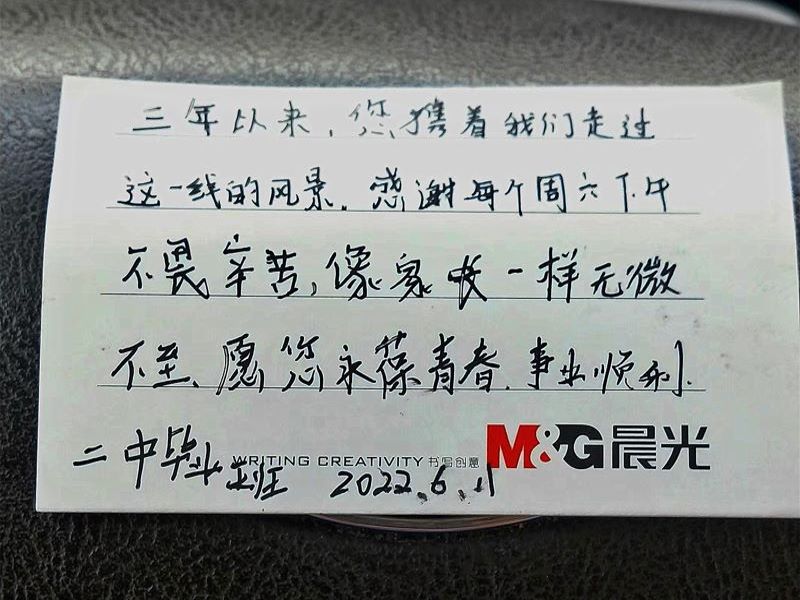 三年以来，您携着我们走过
这一线的风景。感谢每个周六下午
不畏辛苦，像家长一样无微
不至、愿您永葆青春、事业顺利、
WRITING CREATIVITY 书写创意 M&G 晨光
二中毕业班 2022.6.11